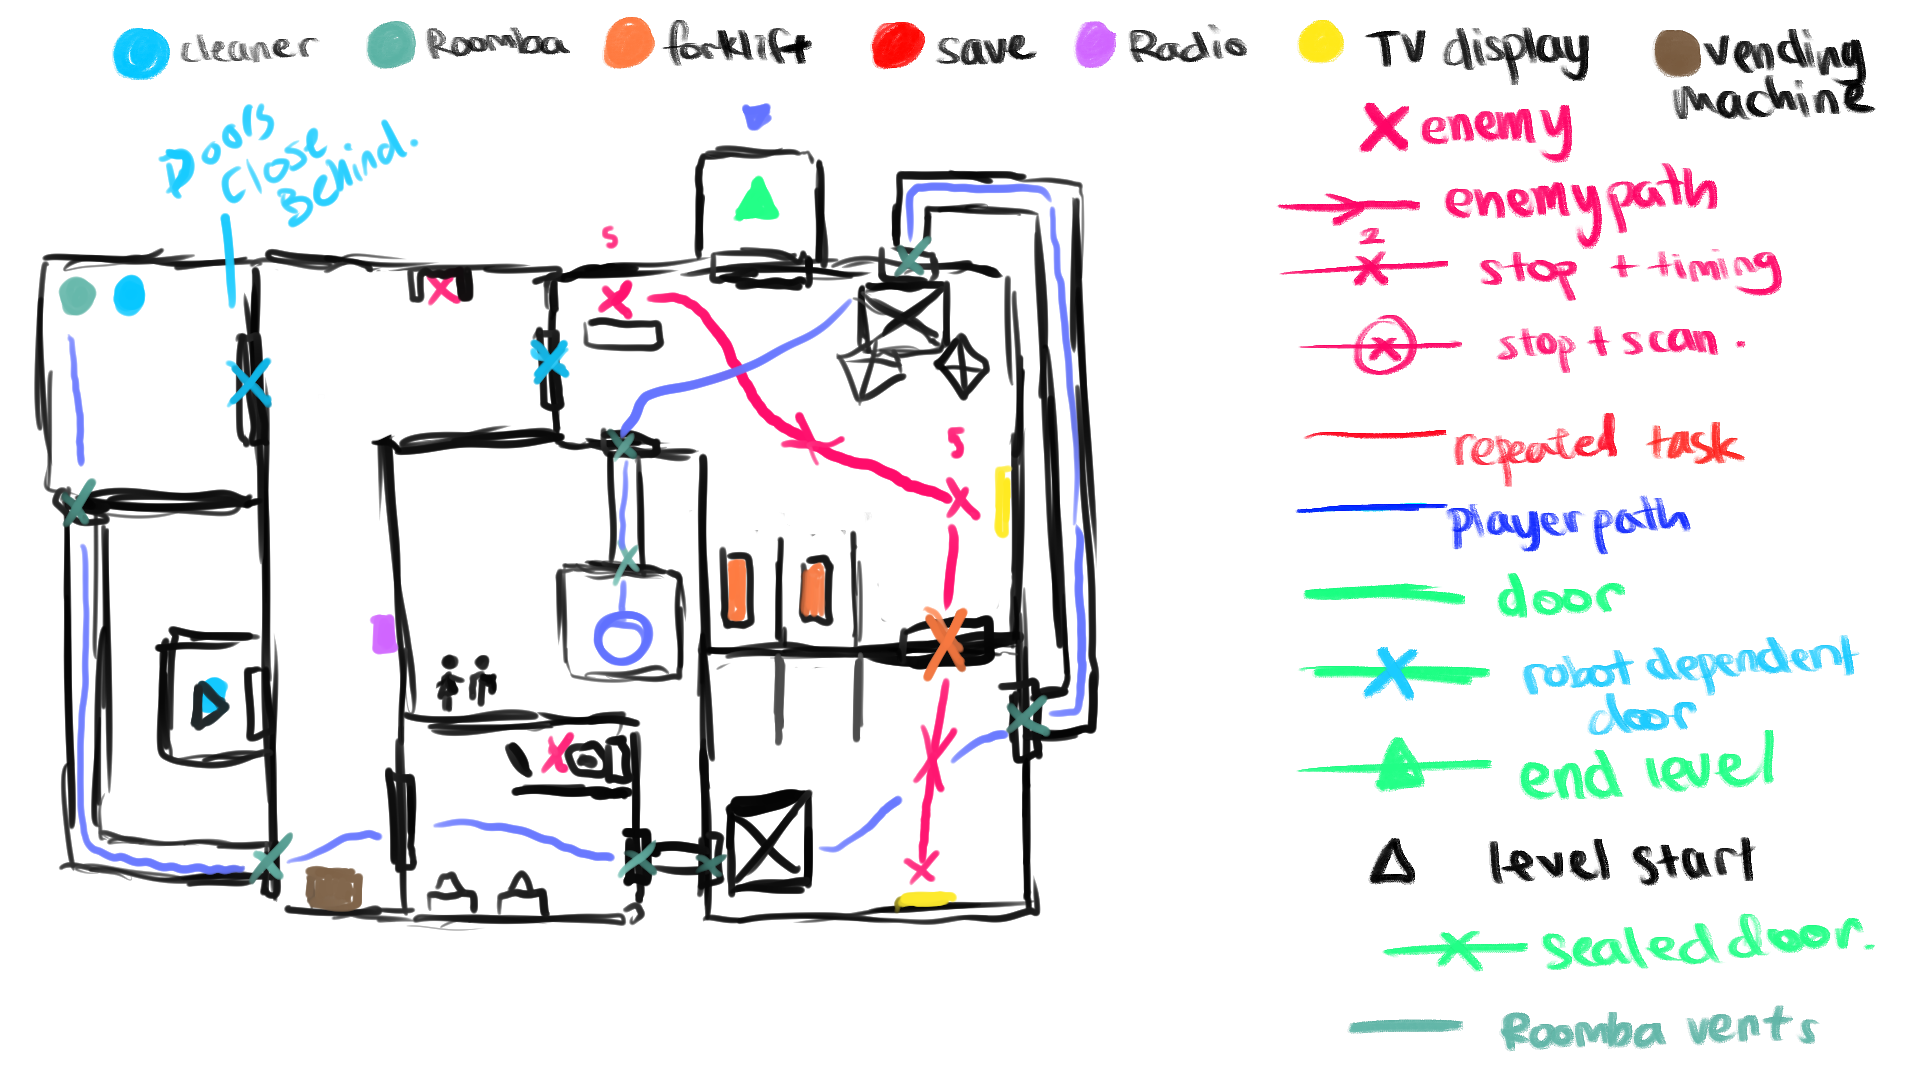 cleaner
Roomba
forklift
save
Radio
TV display
vending
machine
Doors
Close
Behind.
5
5
X enemy
enemy path
2
stop + timing
stop + scan.
repeated task
player path
door
robot dependent
door
end level
level start
sealed door.
Roomba vents